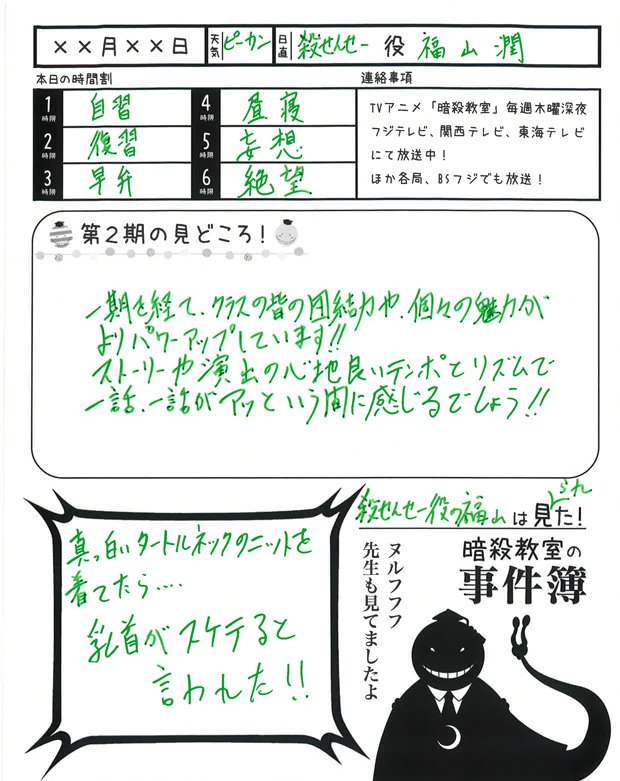 ××月××日 天気 ピーカン 日直 殺せんせー 役 福山潤
本日の時間割
1時限 自習 4時限 昼寝
2時限 復習 5時限 妄想
3時限 早弁 6時限 絶望
連絡事項
TVアニメ「暗殺教室」毎週木曜深夜
フジテレビ、関西テレビ、東海テレビ
にて放送中！
ほか各局、BSフジでも放送！
第2期の見どころ！
一期を経て、クラスの皆の団結力や、個々の魅力が
よりパワーアップしています!!
ストーリーや演出の心地良いテンポとリズムで
一話、一話がアッという間に感じるでしょう!!
殺せんせー役の福山は見られた！
暗殺教室の
事件簿
ヌルフフフ
先生も見てましたよ
真っ白いタートルネックのニットを
着てたら....
乳首がスケてると
言われた!!